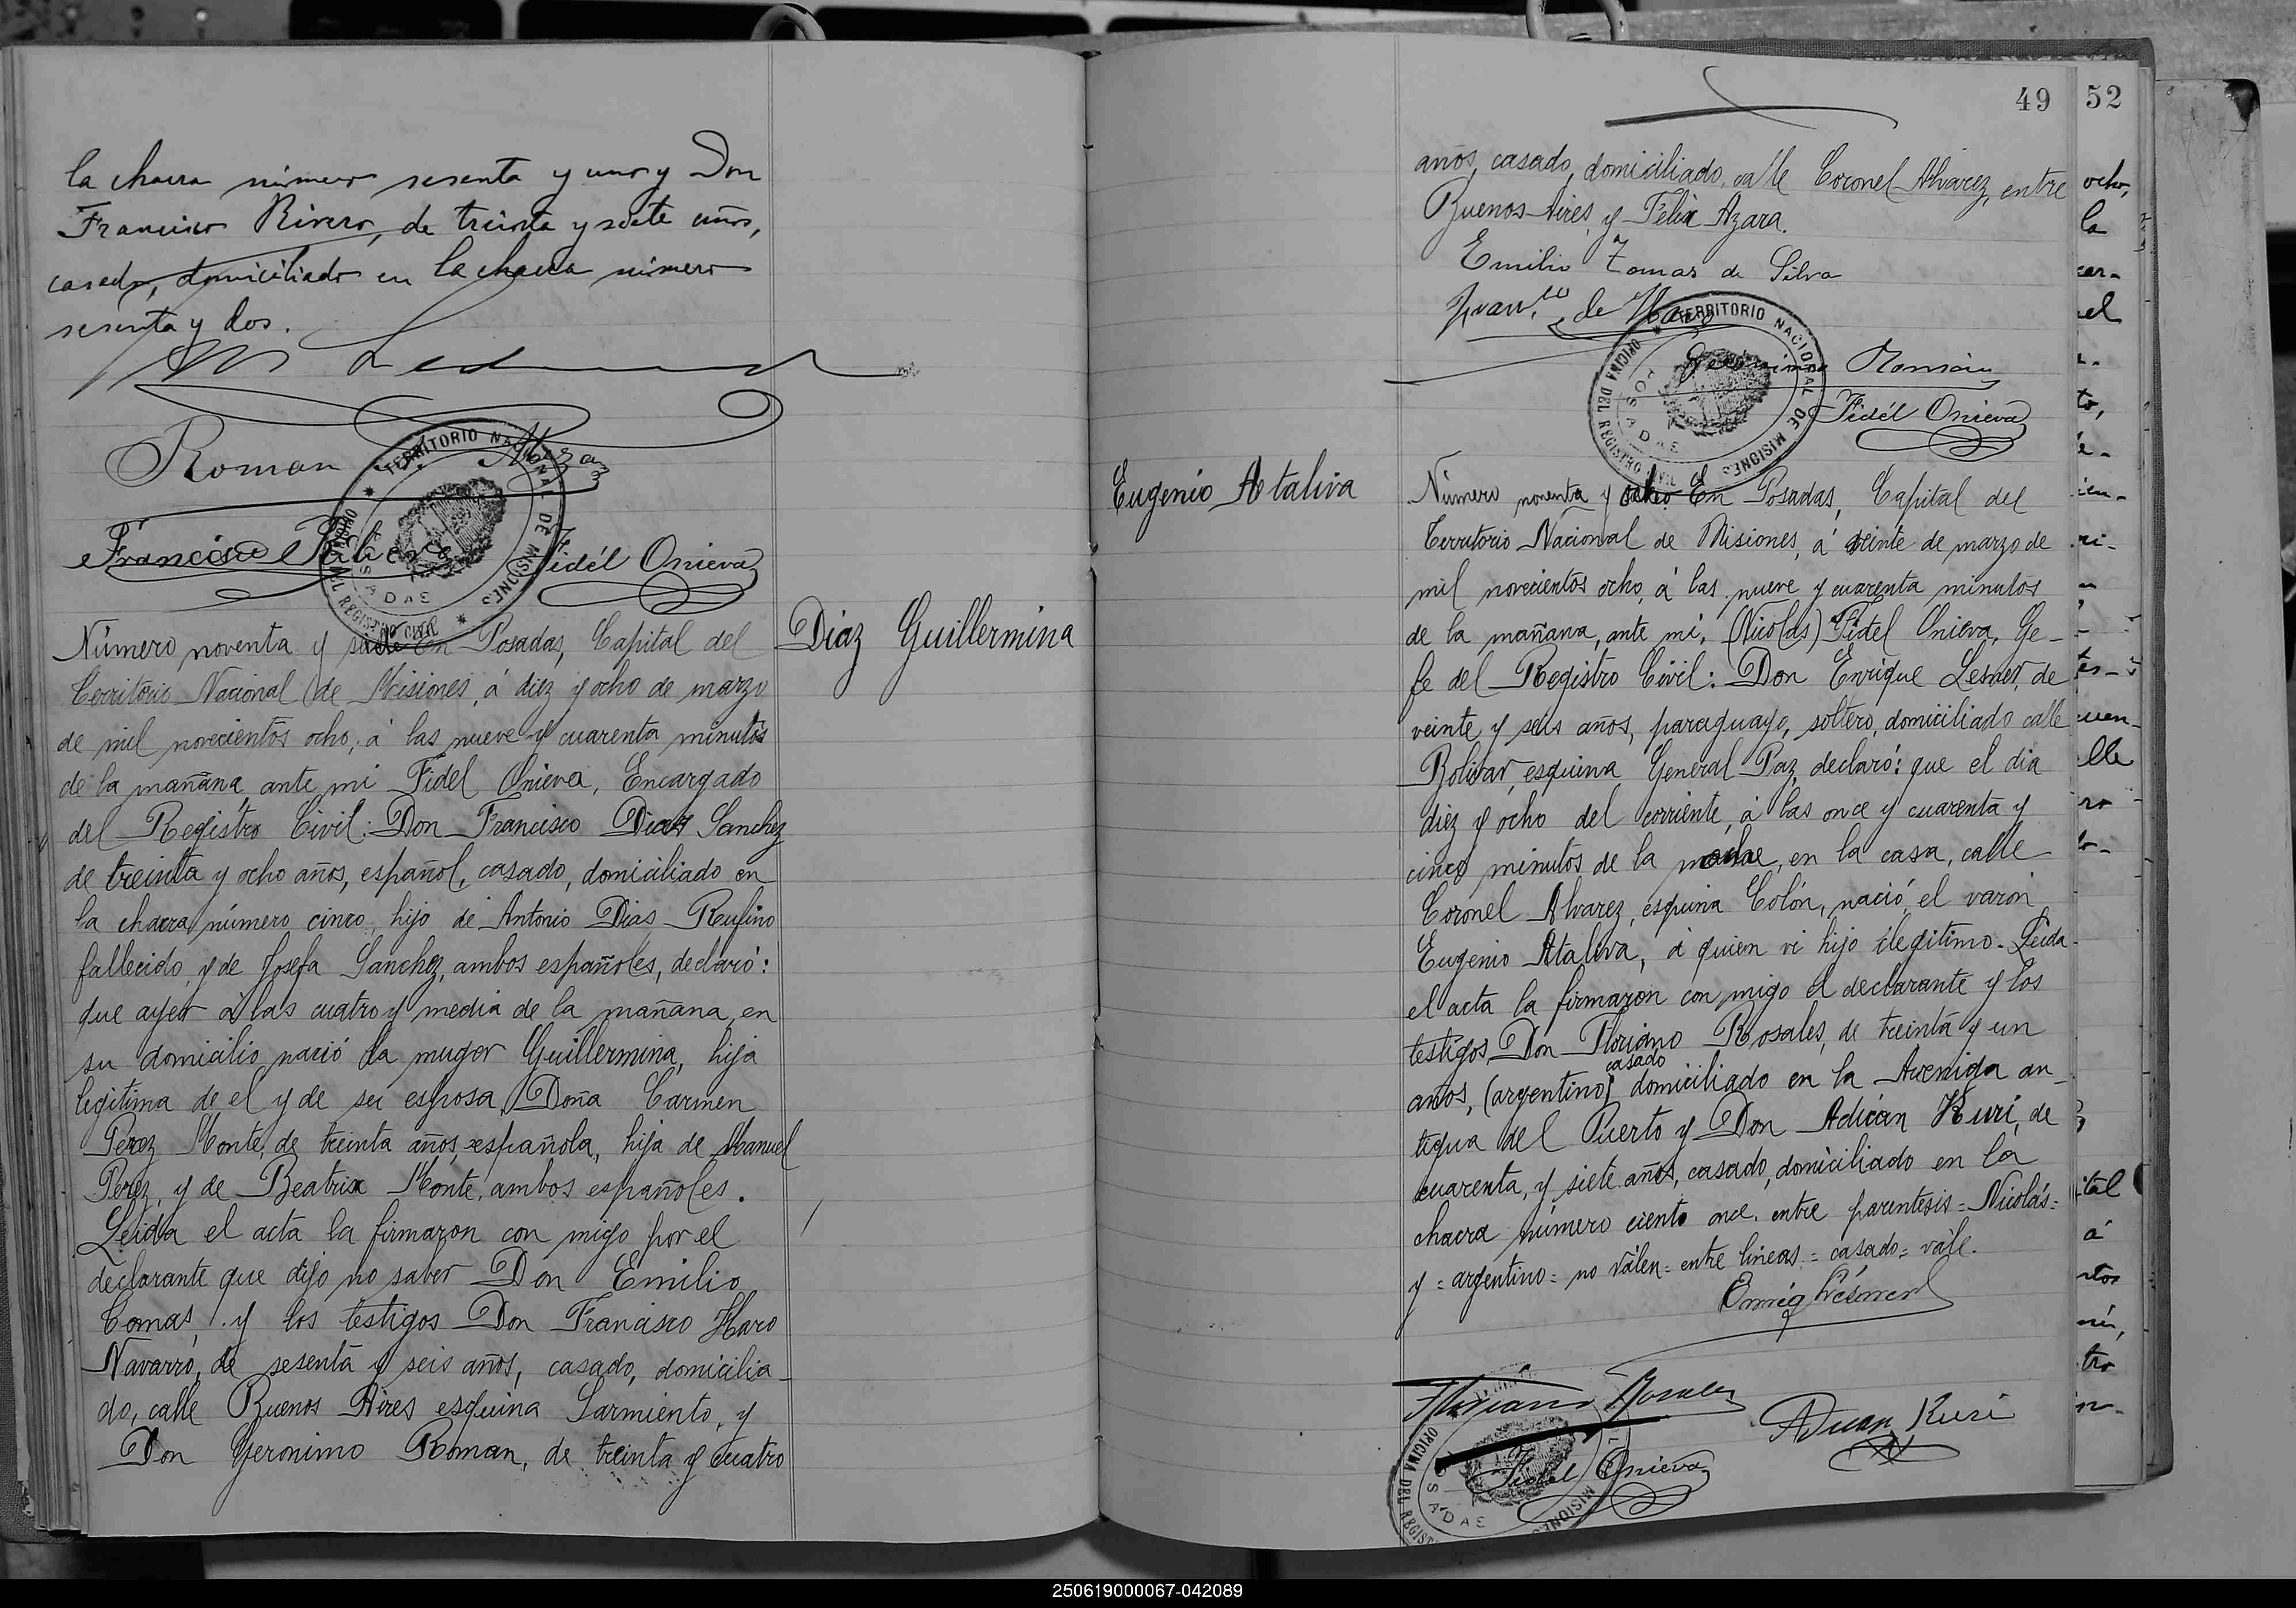 la chacra número sesenta y uno y Don
Francisco Rivero, de treinta y siete años,
casado, domiciliado en la chacra número
sesenta y dos.
Roman
TERRITORIO NACIONAL DE MISIONES
OFICINA DEL REGISTRO CIVIL
POSADAS
Francisco Ribero
Fidél Onieva
Número noventa y siete En Posadas, Capital del
Territorio Nacional de Misiones, á diez y ocho de marzo
de mil novecientos ocho, á las nueve y cuarenta minutos
de la mañana, ante mi Fidel Onieva, Encargado
del Registro Civil: Don Francisco Dias Sanchez
de treinta y ocho años, español, casado, domiciliado en
la chacra número cinco, hijo de Antonio Dias Rufino
fallecido, y de Josefa Sanchez, ambos españoles, declaró:
que ayer á las cuatro y media de la mañana, en
su domicilio nació la muger Guillermina, hija
legitima de el y de su esposa Doña Carmen
Perez Monte, de treinta años, española, hija de Manuel
Perez, y de Beatrix Monte, ambos españoles.
Leida el acta la firmaron con migo por el
declarante que dijo no saber Don Emilio
Tomas, y los testigos Don Francisco Haro
Navarro, de sesenta y seis años, casado, domicilia-
do, calle Buenos Aires esquina Sarmiento, y
Don Geronimo Roman, de treinta y cuatro
Diaz Guillermina
49
años, casado, domiciliado, calle Coronel Alvarez, entre
Buenos Aires, y Felix Azara.
Emilio Tomas de Silva
Fran.co de Haro
Geronimo Román
TERRITORIO NACIONAL DE MISIONES
OFICINA DEL REGISTRO CIVIL
POSADAS
Fidél Onieva
Eugenio Ataliva
Número noventa y ocho En Posadas, Capital del
Territorio Nacional de Misiones, á veinte de marzo de
mil novecientos ocho, á las nueve y cuarenta minutos
de la mañana, ante mi, (Nicolas) Fidel Onieva, Ge-
fe del Registro Civil: Don Enrique Lesner, de
veinte y seis años, paraguayo, soltero, domiciliado calle
Bolivar, esquina General Paz, declaró: que el dia
diez y ocho del corriente, á las once y cuarenta y
cinco minutos de la noche, en la casa, calle
Coronel Alvarez, esquina Colón, nació, el varón
Eugenio Ataliva, á quien vi hijo ilegitimo. Leida
el acta la firmaron con migo el declarante y los
testigos, Don Floriano Rosales, de treinta y un
casado
años, (argentino) domiciliado en la Avenida an-
tigua del Puerto y Don Adúan Kuri, de
cuarenta, y siete años, casado, domiciliado en la
chacra número ciento once. entre parentesis = Nicolás =
y = argentino = no válen = entre lineas = casado = vale.
Enriq Lésner
Floriano Rosales
Aduan Kuri
Fidel Onieva
OFICINA DEL REGIST
POSADAS
MISIONES
52
ocho,
la
car-
el
to,
cuen-
lle
ro
ital
á
ntos
mi,
tro
250619000067-042089